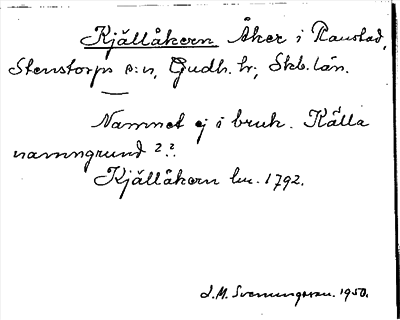 Kjällåkern Åker i Ranstad,
Stenstorps s:n, Gudh. hr; Skb. län.
Namnet ej i bruk. Källa
namngrund ??
Kjällåkern lm. 1792.
J. M. Svenungsson. 1950.